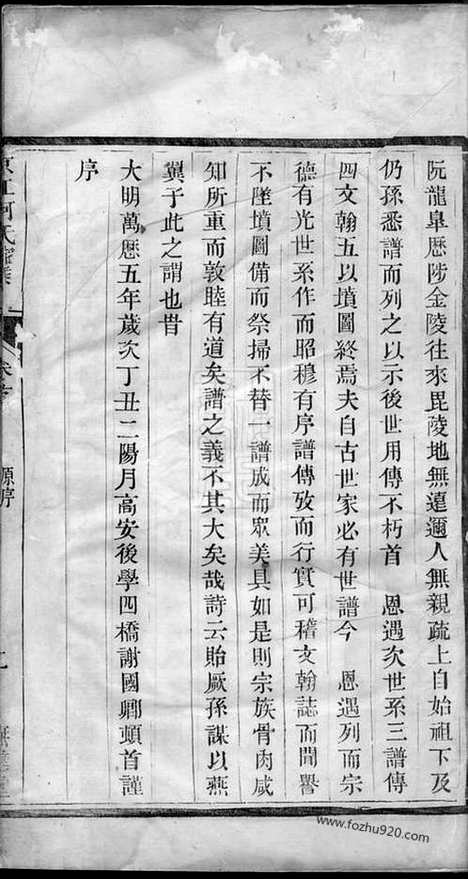 阮龍臯歷陟金陵往來毘陵地無遠邇人無親疏上自始祖下及
仍孫悉譜而列之以示後世用傳不朽首　恩遇次世系三譜傳
四文翰五以墳圖終焉夫自古世家必有世譜今　恩遇列而宗
德有光世系作而昭穆有序譜傳攷而行實可稽文翰誌而聞譽
不墜墳圖備而祭掃不替一譜成而眾美具如是則宗族骨肉咸
知所重而敦睦有道矣譜之義不其大矣哉詩云貽厥孫謀以燕
翼于此之謂也昔
大明萬歷五年歲次丁丑二陽月高安後學四橋謝國卿頓首謹
序
江何氏
源序
www.fozhu920.com